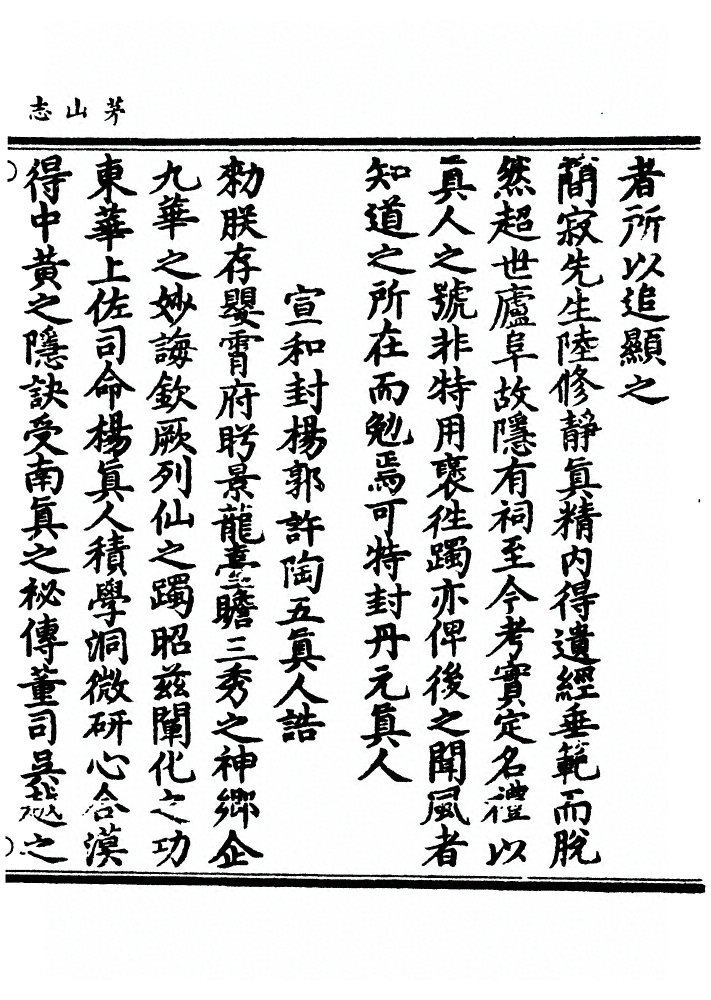 茅山志
者所以追顯之
簡寂先生陸修靜真精內得遺經垂範而脫
然超世廬阜故隱有祠至今考實定名禮以
真人之號非特用褒徃躅亦俾後之聞風者
知道之所在而勉焉可特封丹元真人
宣和封楊郭許陶五真人誥
勑朕存嬰霄府眄景龍臺瞻三秀之神鄉企
九華之妙誨欽厥列仙之躅昭茲闡化之功
東華上佐司命楊真人積學洞微研心合漠
得中黃之隱訣受南真之祕傳董司吳越之